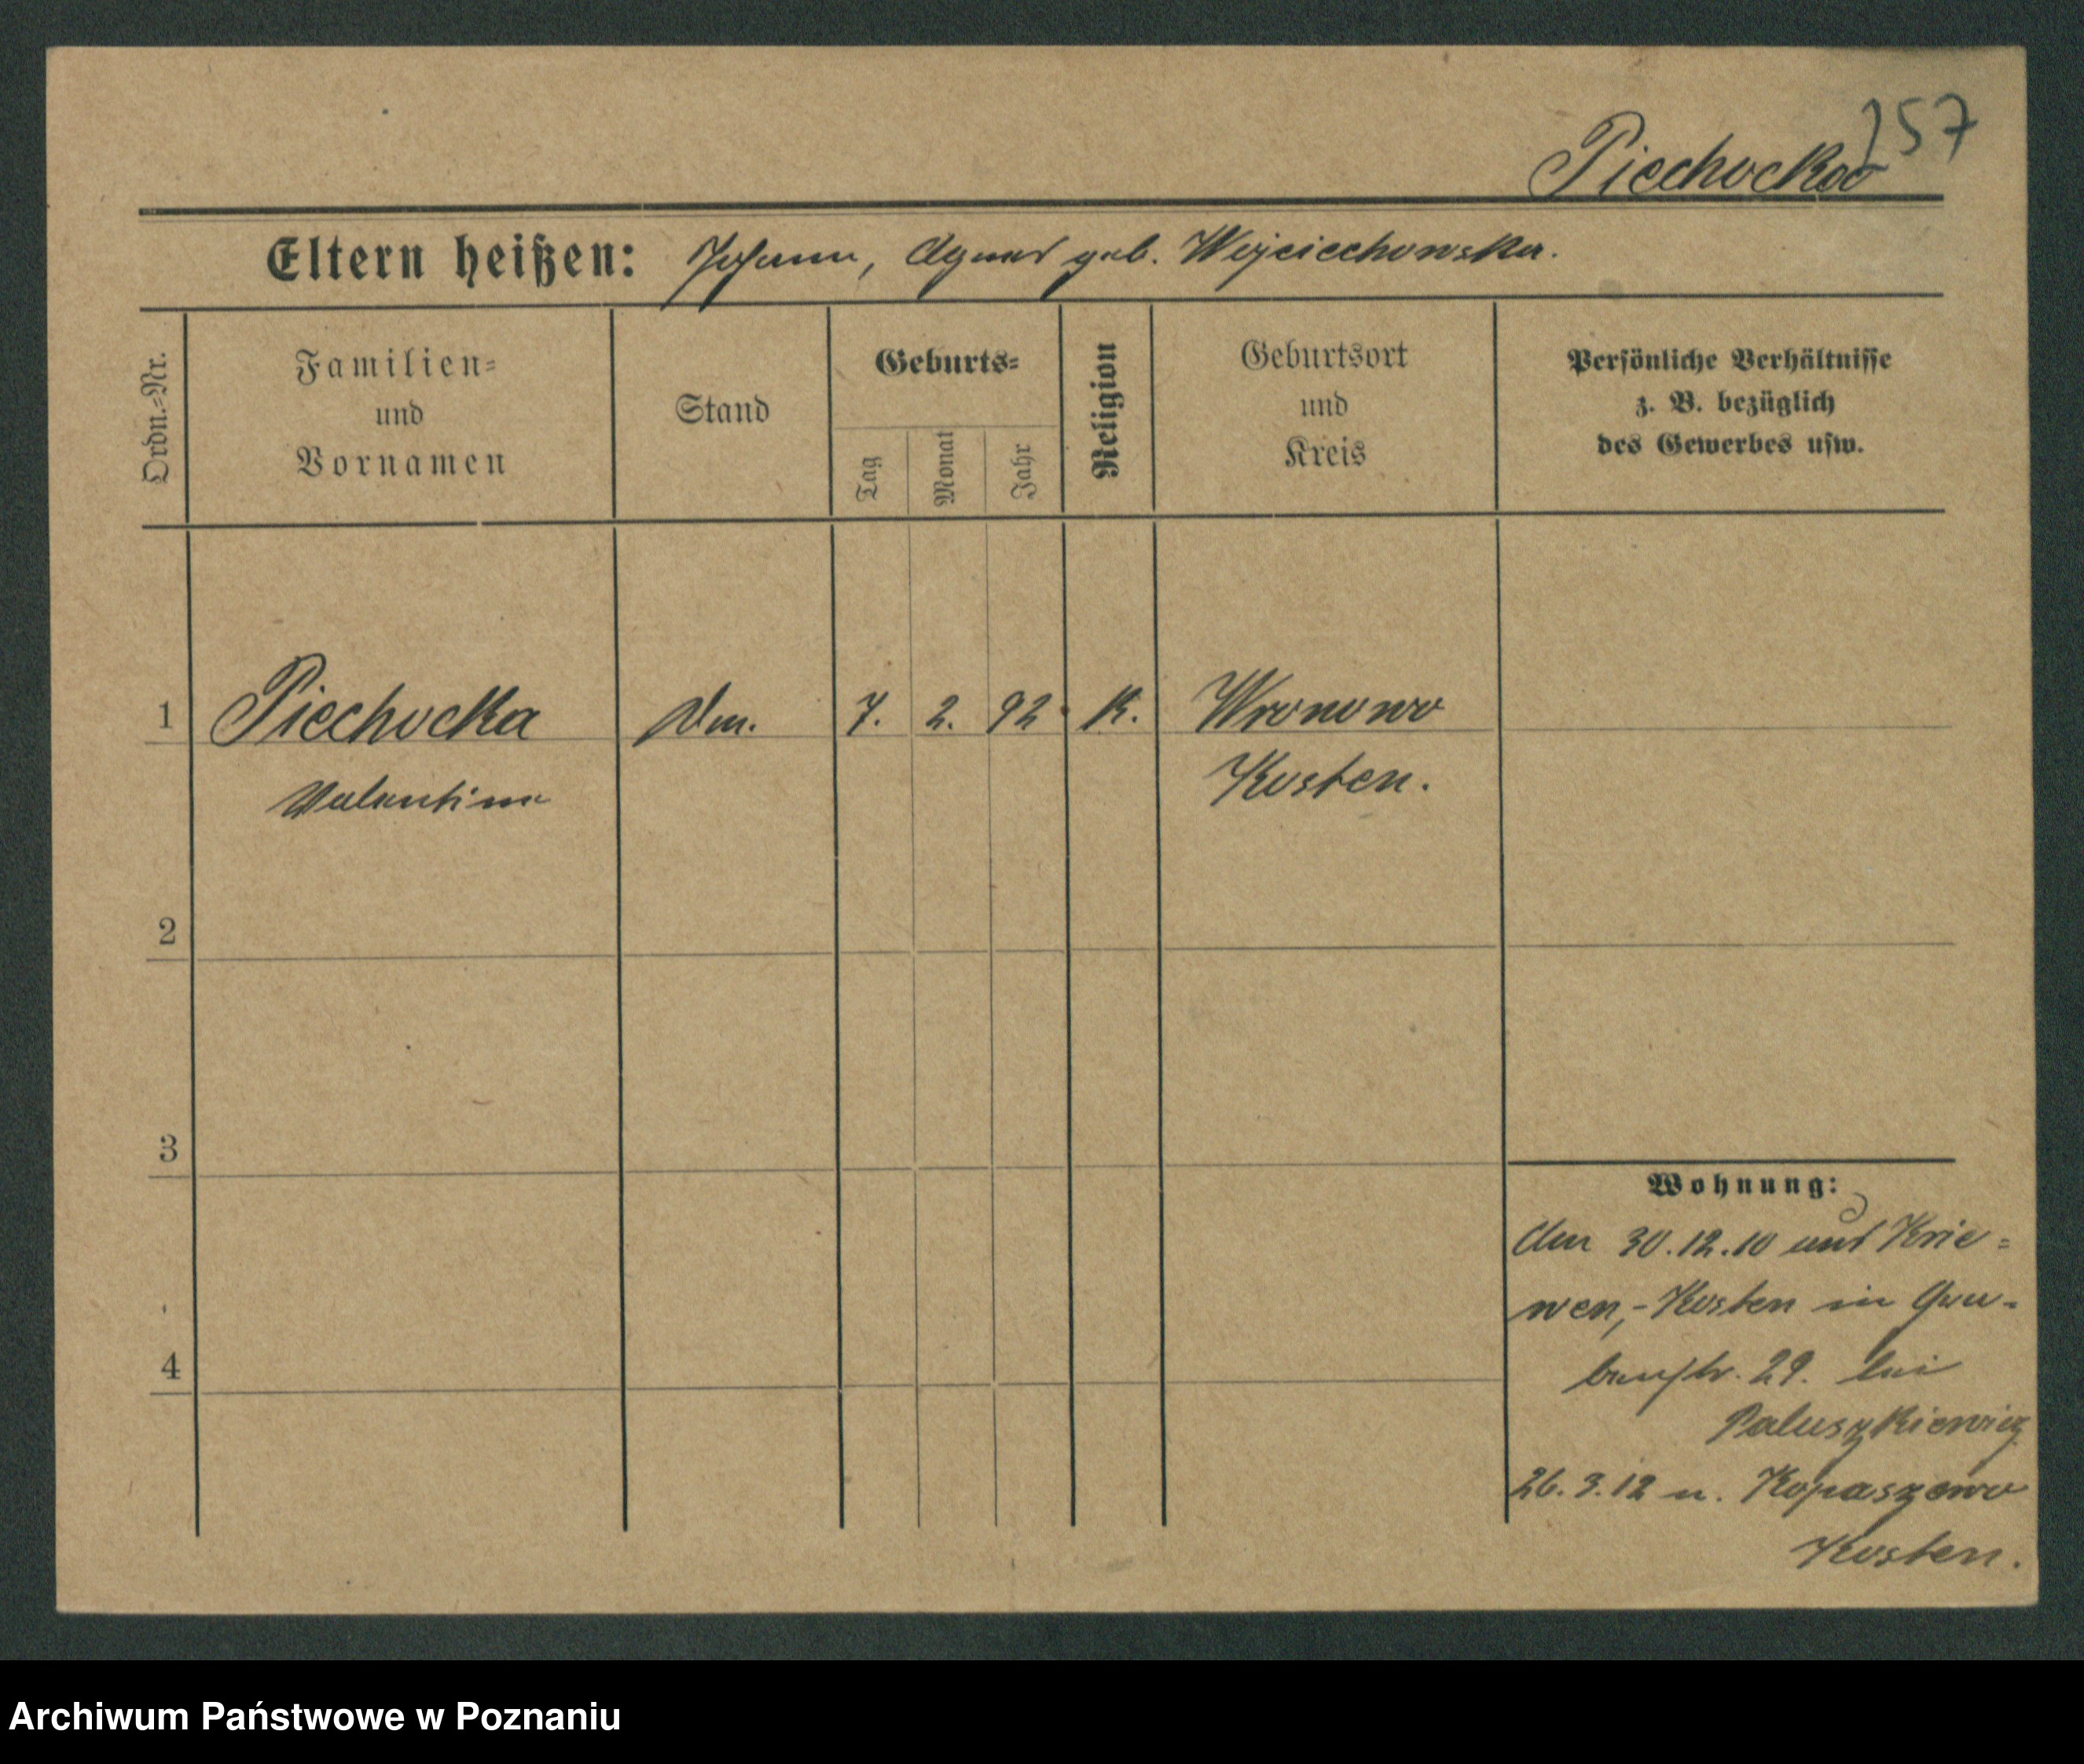 257
Piechocka
Eltern heißen: Johann, Agnes geb. Wojciechowska.
Ordn.-Nr.
Familien-
und
Vornamen
Stand
Geburts-
Tag
Monat
Jahr
Religion
Geburtsort
und
Kreis
Persönliche Verhältnisse
z. B. bezüglich
des Gewerbes usw.
1 Piechocka 7. 2. 92 K. Wronowo
Valentina Kosten.
2
3
4
Wohnung:
Am 30.12.10 aus Krie-
wen,-Kosten in
29. bei
Paluszkiewicz
26.3.12 n. Kopaszewo
Kosten.
Archiwum Państwowe w Poznaniu